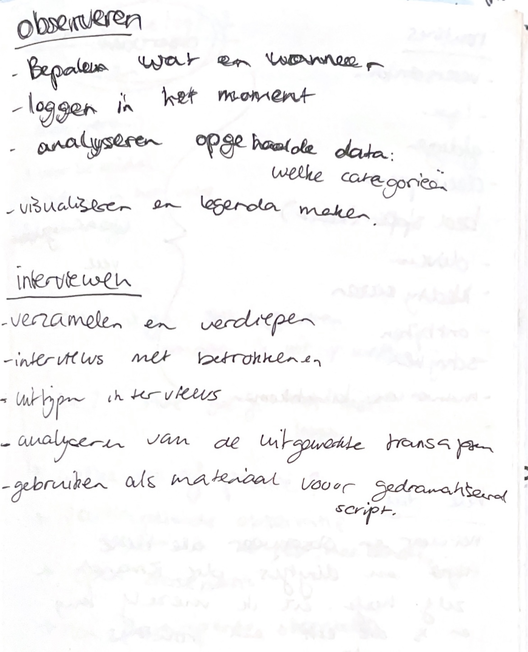 observeren
- Bepalen wat en wanneer
- loggen in het moment
- analyseren opgehaalde data:
welke categorieën
- visualiseren en legenda maken.
interviewen
- verzamelen en verdiepen
- interviews met betrokkenen
- uittypen interviews
- analyseren van de uitgewerkte transcripten
- gebruiken als materiaal voor gedramatiseerd
script.